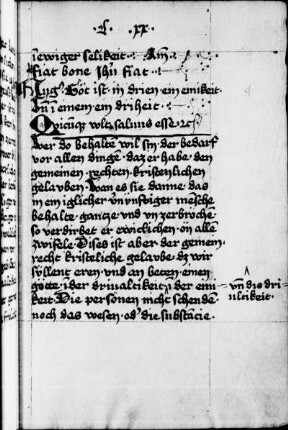 · L · xx ·
iewiger selikeit · Am̄ ·
fiat bone Ihū fiat ·
Got ist · in drien ein einikeit
vn̄ in einem ein driheit ·
Qvicūq; vult saluus esse · ꝛc
wer do behalten wil sin · der bedarf
vor allen dingē · daz er habe den
gemeinen · rechten · kristenlichen
gelauben · wan es sie danne das
in ein iglicher vūnvftiger mēsche
behalte gantze vnd vn zerbrochē
so verdirbet er ewiclichen · on alle
zwifele Dises ist aber der gemein ·
recht kristeliche gelaube · dz wir
süllent eren · vnd an beten · einen
gotte · i der driualtikeit · der eini
keit Die personen nicht schendē
noch das wesen · od' die substācie ·
vn̄ die dri
ualtikeit ·